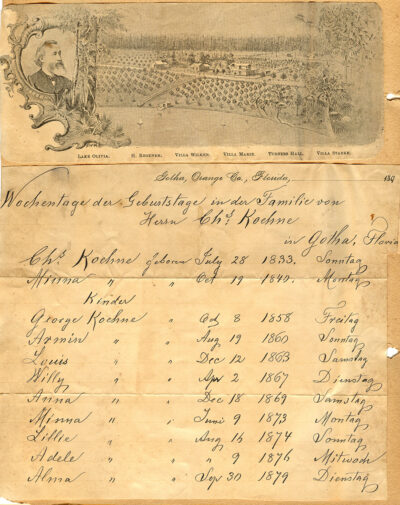 LAKE OLIVIA. H. REGENER. VILLA WILKEN. VILLA MARIE. TURNERS HALL. VILLA STARKE.
Gotha, Orange Co., Florida, 189
Wochentage der Geburtstage in der Familie von
Herrn Chs. Koehne
in Gotha, Florida
Chs. Koehne geboren July 28 1833. Sonntag
Minna " " Oct 19 1840. Montag
Kinder
George Koehne " Oct 8 1858 Freitag
Armin " " Aug 19 1860 Sonntag
Louis " " Dec 12 1863 Samstag
Willy " " Apr 2 1867 Dienstag
Anna " " Dec 18 1869 Samstag
Minna " " Juni 9 1873 Montag
Lillie " " Aug 16 1874 Sonntag
Adele " " " 9 1876 Mitwoch
Alma " " Sep 30 1879 Dienstag